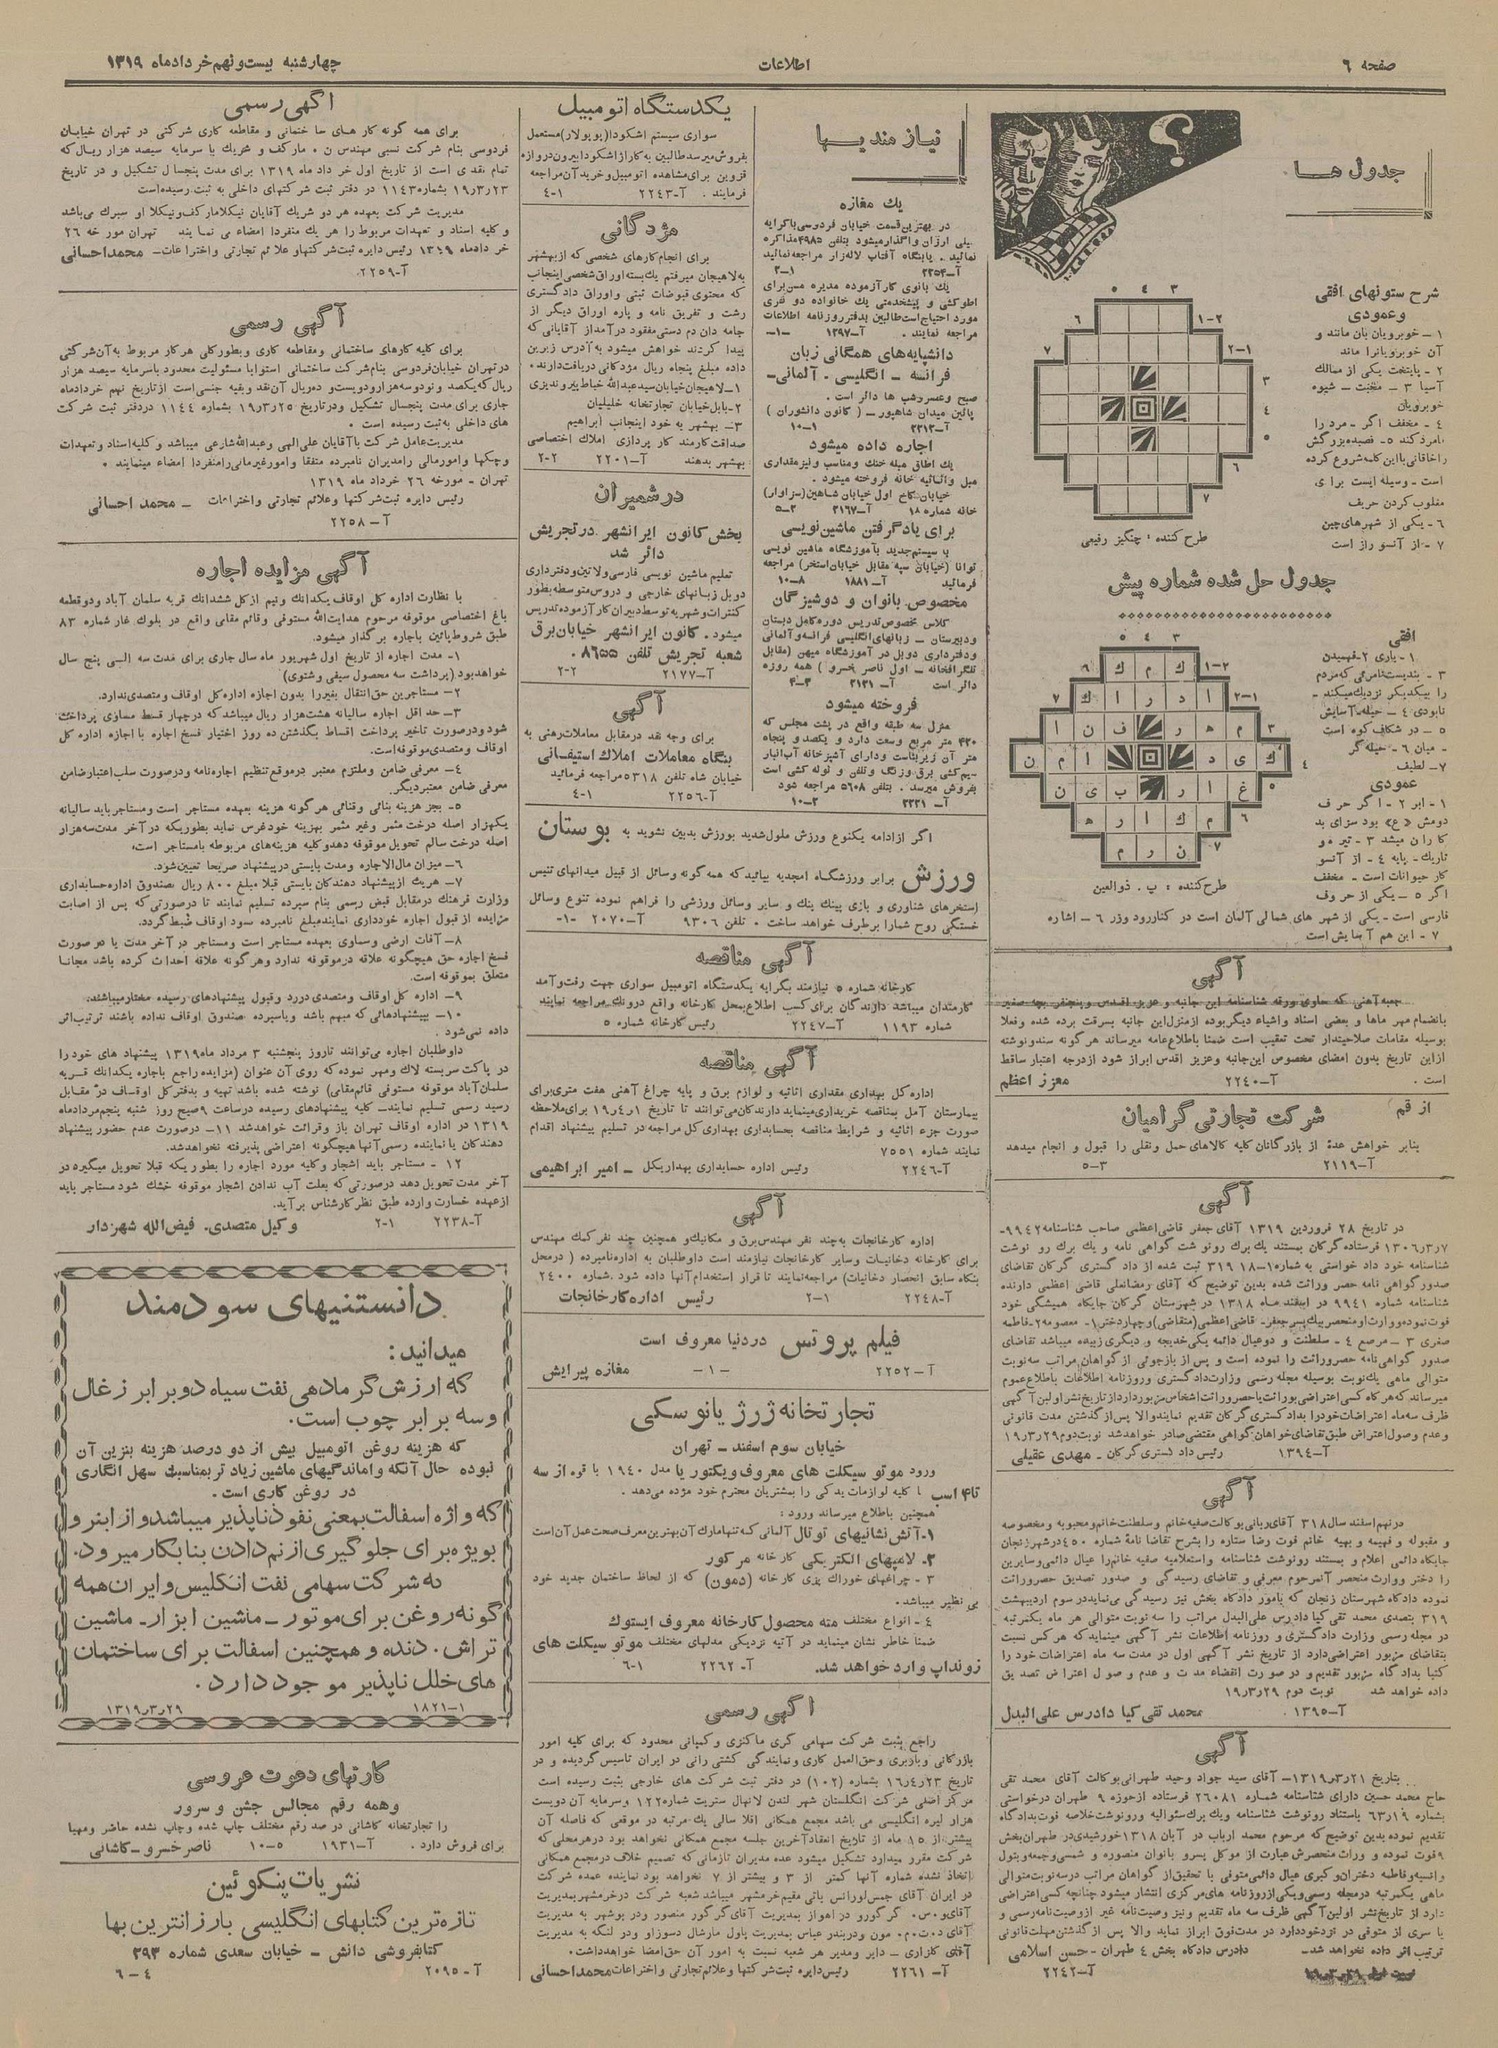 صفحه ۶
اطلاعات
چهارشنبه بیست‌ونهم خرداد ماه ۱۳۱۹
جدول ها
شرح ستونهای افقی
وعمودی
۱ - خوبرویان بان مانند و
آن خوبرویانرا ماند
۲ - پایتخت یکی از ممالک
آسیا ۳ - محبت - شیوه
خوبرویان
۴ - مخفف اگر - مرد را
نامرد کند ۵- قصیده بزرگش
را خاقانی با این کلمه شروع کرده
است - وسیله ایست برای
مغلوب کردن حریف
۶ - یکی از شهرهای چین
۷ - از آنسو راز است
طرح کننده : چنگیز رفیعی
جدول حل شده شماره پیش
افقی
۱ - یاری ۲ - فهمیدن
را بیکدیگر نزدیک میکند -
نابودی ۴ - حیله - آسایش
۵ - در شکاف کوه است
- میان ۶ - حیله گر
۷ - لطیف
عمودی
۱ - ابر ۲ - اگر حرف
دومش «ع» بود سزای بد
کاران میشد ۳ - تیره و
تاریک - پایه ۴ - از آنسو
کار حیوانات است - مخفف
اگر ۵ - یکی از حروف
طرح کننده : پ . ذوالعین
فارسی است - یکی از شهر های شمالی آلمان است در کنار رود وزر ۶ - اشاره
۷ - این هم آسایش است
آگهی
جعبه آهنی که حاوی ورقه شناسنامه این جانبه و عزیز اقدس وپنجنفر بچه صغیر
بانضمام مهر ماها و بعضی اسناد واشیاء دیگر بوده ازمنزل این جانبه بسرقت برده شده وفعلا
بوسیله مقامات صلاحیتدار تحت تعقیب است ضمنا باطلاع عامه میرساند هر گونه سند ونوشته
ازاین تاریخ بدون امضای مخصوص این‌جانبه وعزیز اقدس ابراز شود ازدرجه اعتبار ساقط
است . آ-۲۲۴۰ معزز اعظم
از قم شرکت تجارتی گرامیان
بنابر خواهش عدهٔ از بازرگانان کلیه کالاهای حمل ونقلی را قبول و انجام میدهد
آ-۲۱۱۹ ۳-۵
آگهی
در تاریخ ۲۸ فروردین ۱۳۱۹ آقای جعفر قاضی‌اعظمی صاحب شناسنامه ۹۹۴۲-
۱۳۰۶ر۳ر۷ فرستاده گرگان بمستند یک برگ رونوشت گواهی نامه و یک برگ رو نوشت
صدور گواهی نامه حصر وراثت شده بدین توضیح که آقای رمضانعلی قاضی اعظمی دارنده
شناسنامه شماره ۹۹۴۱ در اسفند ماه ۱۳۱۸ در شهرستان گرگان جایگاه همیشگی خود
صغری ۳ - مرصع ۴ - سلطنت و دوعیال دائمه یکی خدیجه و دیگری زبیده میباشد تقاضای
صدور گواهی‌نامه حصروراثت را نموده است و پس از بازجوئی از گواهان مراتب سه‌نوبت
متوالی ماهی یک‌نوبت بوسیله مجله رسمی وزارت‌دادگستری وروزنامه اطلاعات باطلاع‌عموم
ظرف سه‌ماه اعتراضات خودرا بدادگستری گرگان تقدیم نمایند والا پس از گذشتن مدت قانونی
وعدم وصول اعتراض طبق تقاضای خواهان گواهی مقتضی صادر خواهد شد نوبت دوم ۱۹ر۳ر۲۹
آ-۱۳۹۴ رئیس داد گستری گرگان - مهدی عقیلی
آگهی
درنهم اسفند سال ۳۱۸ آقای ربانی بوکالت صفیه‌خانم وسلطنت‌خانم ومحبوبه و مخصوصه
و مقبوله و فهیمه و بهیه خانم فوت رضا ستاره را بشرح تقاضا نامهٔ شماره ۴۵۰ درشهرزنجان
جایگاه دائمی اعلام و بمستند رونوشت شناسنامه واستعلامیه صفیه خانم‌را عیال دائمی وسایرین
را دختر ووارث منحصر آنمرحوم معرفی و تقاضای رسیدگی و صدور تصدیق حصروراثت
نموده دادگاه شهرستان زنجان که بامور دادگاه بخش نیز رسیدگی می‌نماید در سوم اردیبهشت
۳۱۹ بتصدی محمد تقی‌کیا دادرس علی‌البدل مراتب را سه نوبت متوالی هر ماه یکمرتبه
در مجله رسمی وزارت دادگستری و روزنامه اطلاعات نشر آگهی مینماید که هر کس نسبت
بتقاضای مزبور اعتراضی دارد از تاریخ نشر آگهی اول در مدت سه ماه اعتراضات خود را
کتبا بداد گاه مزبور تقدیم و در صورت انقضاء مدت و عدم وصول اعتراض تصدیق
داده خواهد شد نوبت دوم ۱۹ر۳ر۲۹
آ-۱۳۹۵ . محمد تقی کیا دادرس علی‌البدل
آگهی
بتاریخ ۱۳۱۹ر۳ر۲۱- آقای سید جواد وحید طهرانی بوکالت آقای محمد تقی
حاج محمد حسین دارای شناسنامه شماره ۲۶۰۸۱ فرستاده ازحوزه ۹ طهران درخواستی
تقدیم نموده بدین توضیح که مرحوم محمد ارباب در آبان ۱۳۱۸ خورشیدی در طهران بخش
۹ فوت نموده و وراث منحصرش عبارت از موکل پسرو بانوان منصوره و شمسی وجمعه وبتول
وانسیه وفاطمه دختران وکبری عیال دائمی متوفی با تحقیق از گواهان مراتب درسه نوبت متوالی
ماهی یکمرتبه درمجله رسمی ویکی ازروزنامه های مرکزی انتشار میشود چنانچه کسی اعتراضی
دارد از تاریخ نشر اولین آگهی ظرف سه ماه تقدیم ونیز وصیت‌نامه غیر ازوصیت‌نامه رسمی و
یا سری از متوفی در نزدخود دارد در مدت فوق ابراز نماید والا پس از گذشتن مهلت قانونی
ترتیب اثر داده نخواهد شد- دادرس دادگاه بخش ۴ طهران - حسن اسلامی
آ-۲۲۴۲
نیاز مندیها
یک مغازه
در بهترین قسمت خیابان فردوسی باکرایه
خیلی ارزان واگذار میشود بتلفن ۴۹۸۵ مذاکره
نمائید . یا بنگاه آفتاب لاله‌زار مراجعه نمائید
آ-۲۲۵۴ ۱-۲
یک بانوی کارآزموده مدیره مسن برای
اطوکشی و پیشخدمتی یک خانواده دو نفری
مورد احتیاج است طالبین بدفتر روزنامه اطلاعات
مراجعه نمایند . آ-۱۳۹۷ -۱-
دانشپایه‌های همگانی زبان
فرانسه - انگلیسی . آلمانی-
صبح وعصر وشب ها دائر است .
پائین میدان شاهپور - ( کانون دانشوران )
آ-۲۲۱۲ ۱-۱۰
اجاره داده میشود
یک اطاق مبله خنک ومناسب ونیز مقداری
مبل واثاثیه خانه فروخته میشود .
خیابان کاخ اول خیابان شاهین (سزاوار)
خانه شماره ۱۸ آ-۲۱۶۷ ۲-۵
برای یاد گرفتن ماشین نویسی
با سیستم جدید بآموزشگاه ماشین نویسی
توانا (خیابان سپه مقابل خیابان استخر) مراجعه
فرمائید آ-۱۸۸۱ ۸-۱۰
مخصوص بانوان و دوشیزگان
کلاس مخصوص تدریس دوره کامل دبستان
ودبیرستان - زبانهای انگلیسی فرانسه و آلمانی
ودفترداری دوبل در آموزشگاه میهن (مقابل
تلگرافخانه - اول ناصر خسرو) همه روزه
دائر است آ-۲۱۳۱ ۳-۴
فروخته میشود
منزل سه طبقه واقع در پشت مجلس که
۴۳۰ متر مربع وسعت دارد و یکصد و پنجاه
متر آن زیر بناست ودارای آشپزخانه آب‌انبار
سیم‌کشی برق وزنگ وتلفن و لوله کشی است
بفروش میرسد . بتلفن ۵۶۰۸ مراجعه شود
آ-۲۲۲۱ ۲-۱۰
یکدستگاه اتومبیل
سواری سیستم اشکودا (پوپولار) مستعمل
بفروش میرسد طالبین به‌گاراژ اشکودا بیرون دروازه
قزوین برای مشاهده اتومبیل وخرید آن مراجعه
فرمایند . آ-۲۲۴۳ ۱-۴
مژدگانی
برای انجام کارهای شخصی که ازبهشهر
به لاهیجان میرفتم یک بسته اوراق شخصی اینجانب
که محتوی قبوضات ثبتی واوراق دادگستری
رشت و تفریق نامه و پاره اوراق دیگر از
جامه دان دم دستی مفقود درآمد از آقایانی که
پیدا کردند خواهش میشود به آدرس زیرین
داده مبلغ پنجاه ریال مژدگانی دریافت دارند .
۱- لاهیجان خیابان سید عبدالله خیاط پیرو نیزی
۲- بابل خیابان تجارتخانه خلیلیان
۳- بهشهر به خود اینجانب ابراهیم
صداقت کارمند کار پردازی املاک اختصاصی
بهشهر بدهند آ-۲۲۰۱ ۲-۲
در شمیران
بخش کانون ایرانشهر در تجریش
دائر شد
تعلیم ماشین نویسی فارسی ولاتین ودفترداری
دوبل زبانهای خارجی و دروس متوسطه بطور
کنترات وشهریه توسط دبیران کار آزموده تدریس
میشود . کانون ایرانشهر خیابان برق
شعبه تجریش تلفن ۸۶۵۵ .
آ-۲۱۷۷ ۲-۲
آگهی
برای وجه نقد درمقابل معاملات رهنی به
بنگاه معاملات املاک استیفانی
خیابان شاه تلفن ۵۳۱۸ مراجعه فرمائید
آ-۲۲۵۶ ۱-۴
اگر ازادامه یکنوع ورزش ملول شدید بورزش بدبین نشوید به بوستان
ورزش برابر ورزشگاه امجدیه بیائید که همه گونه وسائل از قبیل میدانهای تنیس
استخرهای شناوری و بازی پینگ پنگ و سایر وسائل ورزشی را فراهم نموده تنوع وسائل
خستگی روح شمارا برطرف خواهد ساخت . تلفن ۹۳۰۶ آ-۲۰۷۰ -۱-
آگهی مناقصه
کارخانه شماره ۵ نیازمند بکرایه یکدستگاه اتومبیل سواری جهت رفت وآمد
کارمندان میباشد دارندگان برای کسب اطلاع بمحل کارخانه واقع درونک مراجعه نمایند
شماره ۱۱۹۳ آ-۲۲۴۷ رئیس کارخانه شماره ۵
آگهی مناقصه
اداره کل بهداری مقداری اثاثیه و لوازم برق و پایه چراغ آهنی هفت متری برای
بیمارستان آمل بمناقصه خریداری مینماید دارندگان می‌توانند تا تاریخ ۱۹ر۴ر۱ برای ملاحظه
صورت جزء اثاثیه و شرایط مناقصه بحسابداری بهداری کل مراجعه در تسلیم پیشنهاد اقدام
نمایند شماره ۷۵۵۱
آ-۲۲۴۶ رئیس اداره حسابداری بهداریکل - امیر ابراهیمی
آگهی
اداره کارخانجات به‌چند نفر مهندس برق و مکانیک و همچنین چند نفر کمک مهندس
برای کارخانه دخانیات وسایر کارخانجات نیازمند است داوطلبان به اداره نامبرده ( درمحل
بنگاه سابق انحصار دخانیات) مراجعه نمایند تا قرار استخدام آنها داده شود . شماره ۲۴۰۰
آ-۲۲۴۸ ۱-۲ رئیس اداره کارخانجات
فیلم پروتس در دنیا معروف است
آ-۲۲۵۲ -۱- مغازه پیرایش
تجارتخانه ژرژ یانوسکی
خیابان سوم اسفند - تهران
ورود موتو سیکلت های معروف ویکتوریا مدل ۱۹۴۰ با قوه از سه
تا ۴ اسب با کلیه لوازمات یدکی را بمشتریان محترم خود مژده می‌دهد .
همچنین باطلاع میرساند ورود :
۱- آتش نشانیهای توتال آلمانی که تنها مارک آن بهترین معرف صحت عمل آن است
۲. لامپهای الکتریکی کارخانه مرکور
۳ - چراغهای خوراک پزی کارخانه (دمون) که از لحاظ ساختمان جدید خود
بی نظیر میباشد .
۴ - انواع مختلف مته محصول کارخانه معروف ایستوک
ضمنا خاطر نشان مینماید در آتیه نزدیکی مدلهای مختلف موتو سیکلت های
زونداپ وارد خواهد شد . آ-۲۲۶۲ ۱-۶
آگهی رسمی
راجع بثبت شرکت سهامی گری ماکنزی و کمپانی محدود که برای کلیه امور
بازرگانی وباربری وحق‌العمل کاری ونمایندگی کشتی رانی در ایران تاسیس گردیده و در
تاریخ ۱۶ر۴ر۲۳ بشماره (۱۰۲) در دفتر ثبت شرکت های خارجی بثبت رسیده است
مرکز اصلی شرکت انگلستان شهر لندن لانهال ستریت شماره ۱۲۲ وسرمایه آن دویست
هزار لیره انگلیسی می باشد مجمع همگانی اقلا سالی یک مرتبه در موقعی که فاصله آن
بیشتر از ۱۵ ماه از تاریخ انعقاد آخرین جلسه مجمع همگانی نخواهد بود درهرمحلی که
شرکت مقرر میدارد تشکیل میشود عده مدیران تازمانی که تصمیم خلاف درمجمع همگانی
اتخاذ نشده شماره آنها کمتر از ۳ و بیشتر از ۷ نخواهد بود نماینده عمده شرکت
آقای و . س . گرگورو در اهواز بمدیریت آقای گرگور منصور ودر بوشهر به مدیریت
آقای گلزاری - دایر ومدیر هر شعبه نسبت به امور آن حق امضا خواهد داشت .
آ-۲۲۶۱ رئیس دایره ثبت شرکتها و علائم تجارتی و اختراعات محمد احسانی
آگهی رسمی
برای همه گونه کار های ساختمانی و مقاطعه کاری شرکتی در تهران خیابان
فردوسی بنام شرکت نسبی مهندس ن . مارکف و شریک با سرمایه سیصد هزار ریال که
تمام نقدی است از تاریخ اول خرداد ماه ۱۳۱۹ برای مدت پنجسال تشکیل و در تاریخ
۱۹ر۳ر۲۳ بشماره ۱۱۴۳ در دفتر ثبت شرکتهای داخلی به ثبت رسیده است
مدیریت شرکت بعهده هر دو شریک آقایان نیکلا مارکف و نیکلا او سبرگ می‌باشد
و کلیه اسناد و تعهدات مربوط را هر یک منفردا امضاء می نمایند تهران مورخه ۲۶
خرداد ماه ۱۳۱۹ رئیس دایره ثبت شرکتها وعلائم تجارتی واختراعات- محمد احسانی
آ-۲۲۵۹
آگهی رسمی
برای کلیه کارهای ساختمانی ومقاطعه کاری وبطور کلی هر کار مربوط به آن شرکتی
درتهران خیابان فردوسی بنام شرکت ساختمانی استوابا مسئولیت محدود باسرمایه سیصد هزار
ریال که یکصد و نودوسه هزار ودویست و ده ریال آن نقد وبقیه جنسی است از تاریخ نهم خردادماه
جاری برای مدت پنجسال تشکیل ودرتاریخ ۱۹ر۳ر۲۵ بشماره ۱۱۴۴ دردفتر ثبت شرکت
های داخلی به ثبت رسیده است .
مدیریت عامل شرکت باآقایان علی‌الهی وعبدالله شارعی میباشد وکلیه اسناد وتعهدات
وچکها وامور مالی رامدیران نامبرده متفقا وامور غیر مالی را منفردا امضاء مینمایند .
تهران - مورخه ۲۶ خرداد ماه ۱۳۱۹
رئیس دایره ثبت شرکتها وعلائم تجارتی واختراعات - محمد احسانی
آ-۲۲۵۸
آگهی مزایده اجاره
با نظارت اداره کل اوقاف یکدانگ ونیم از کل ششدانگ قریه سلمان آباد ودوقطعه
باغ اختصاصی موقوفه مرحوم هدایت‌الله مستوفی وقائم مقامی واقع در بلوک غار شماره ۸۳
طبق شروط پائین باجاره برگذار میشود .
۱- مدت اجاره از تاریخ اول شهریور ماه سال جاری برای مدت سه الی پنج سال
خواهدبود (برداشت سه محصول صیفی وشتوی)
۲- مستاجرین حق انتقال بغیررا بدون اجازه اداره کل اوقاف ومتصدی ندارد .
۳- حد اقل اجاره سالیانه هشت هزار ریال میباشد که درچهار قسط مساوی پرداخت
شود ودرصورت تاخیر پرداخت اقساط بگذشتن ده روز اختیار فسخ اجاره با اجازه اداره کل
اوقاف ومتصدی موقوفه است .
۴- معرفی ضامن وملتزم معتبر درموقع تنظیم اجاره‌نامه ودرصورت سلب اعتبار ضامن
معرفی ضامن معتبر دیگر .
۵- بجز هزینه بنائی وقناتی هر گونه هزینه بعهده مستاجر است ومستاجر باید سالیانه
یکهزار اصله درخت مثمر وغیر مثمر بهزینه خود غرس نماید بطوریکه در آخر مدت سه هزار
اصله درخت سالم تحویل موقوفه دهد وکلیه هزینه‌های مربوطه بامستاجر است .
۶- میزان مال‌الاجاره ومدت بایستی درپیشنهاد صریحا تعیین شود .
۷- هریک از پیشنهاد دهندگان بایستی قبلا مبلغ ۸۰۰ ریال بصندوق اداره حسابداری
وزارت فرهنگ درمقابل قبض رسمی بنام سپرده تسلیم نمایند تا درصورتی که پس از اصابت
مزایده از قبول اجاره خودداری نماید مبلغ نامبرده بسود اوقاف ضبط گردد .
۸- آفات ارضی وسماوی بعهده مستاجر است ومستاجر در آخر مدت یا در صورت
فسخ اجاره حق هیچگونه علاقه درموقوفه ندارد وهر گونه علاقه احداث کرده باشد مجانا
متعلق بموقوفه است .
۹- اداره کل اوقاف ومتصدی دررد وقبول پیشنهادهای رسیده مختار میباشند .
۱۰- بپیشنهادهائی که مبهم باشد ویاسپرده صندوق اوقاف نداده باشند ترتیب اثر
داده نمی‌شود .
داوطلبان اجاره می‌توانند تا روز پنجشنبه ۳ مرداد ماه ۱۳۱۹ پیشنهاد های خود را
در پاکت سربسته لاک ومهر نموده که روی آن عنوان (مزایده راجع باجاره یکدانگ قریه
سلمان‌آباد موقوفه مستوفی قائم‌مقامی) نوشته شده باشد تهیه و بدفتر کل اوقاف در مقابل
رسید رسمی تسلیم نمایند- کلیه پیشنهادهای رسیده درساعت ۹ صبح روز شنبه پنجم مردادماه
۱۳۱۹ در اداره اوقاف تهران باز وقرائت خواهد شد ۱۱- درصورت عدم حضور پیشنهاد
دهندگان یا نماینده رسمی آنها هیچگونه اعتراضی پذیرفته نخواهد شد .
۱۲ - مستاجر باید اشجار وکلیه مورد اجاره را بطوریکه قبلا تحویل میگیرد در
آخر مدت تحویل دهد درصورتی که بعلت آب ندادن اشجار موقوفه خشک شود مستاجر باید
از عهده خسارت وارده طبق نظر کارشناس برآید .
آ-۲۲۳۸ ۱-۲ وکیل متصدی . فیض‌الله شهردار
دانستنیهای سودمند
میدانید :
که ارزش گرمادهی نفت سیاه دو برابر زغال
وسه برابر چوب است .
که هزینه روغن اتومبیل بیش از دو درصد هزینه بنزین آن
نبوده حال آنکه واماندگیهای ماشین زیاد تر بمناسبت سهل انگاری
در روغن کاری است .
که واژه اسفالت بمعنی نفوذ ناپذیر میباشد و از اینرو
بویژه برای جلوگیری از نم دادن بنا بکار میرود .
که شرکت سهامی نفت انگلیس و ایران همه
گونه روغن برای موتور - ماشین ابزار - ماشین
تراش . دنده و همچنین اسفالت برای ساختمان
های خلل ناپذیر موجود دارد .
۱-۱۸۲۱ ۱۳۱۹ر۳ر۲۹
کارتهای دعوت عروسی
وهمه رقم مجالس جشن و سرور
را تجارتخانه کاشانی در صد رقم مختلف چاپ شده وچاپ نشده حاضر ومهیا
برای فروش دارد . آ-۱۹۳۱ ۵-۱۰ ناصر خسرو - کاشانی
نشریات پنگوئین
تازه‌ترین کتابهای انگلیسی بارزانترین بها
کتابفروشی دانش - خیابان سعدی شماره ۲۹۳
آ-۲۰۹۵ ۴-۶